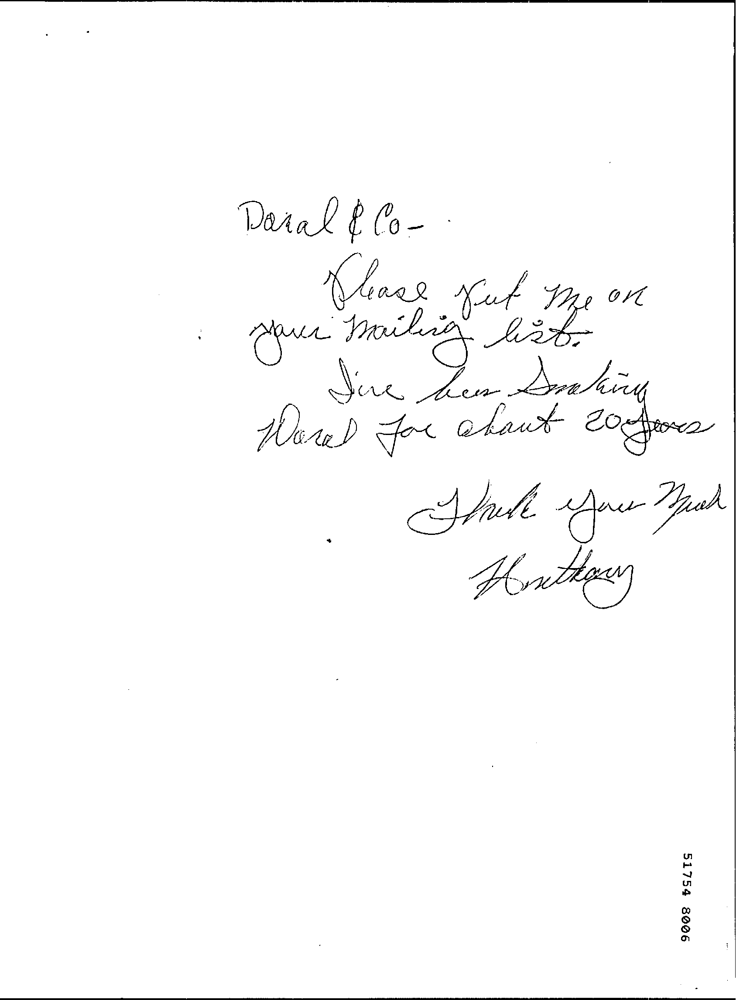 Doral & Co-
Please put me on
your mailing list.
I've been Smoking
Doral for about 20 years
Thank you Much
Anthony
51754 8006